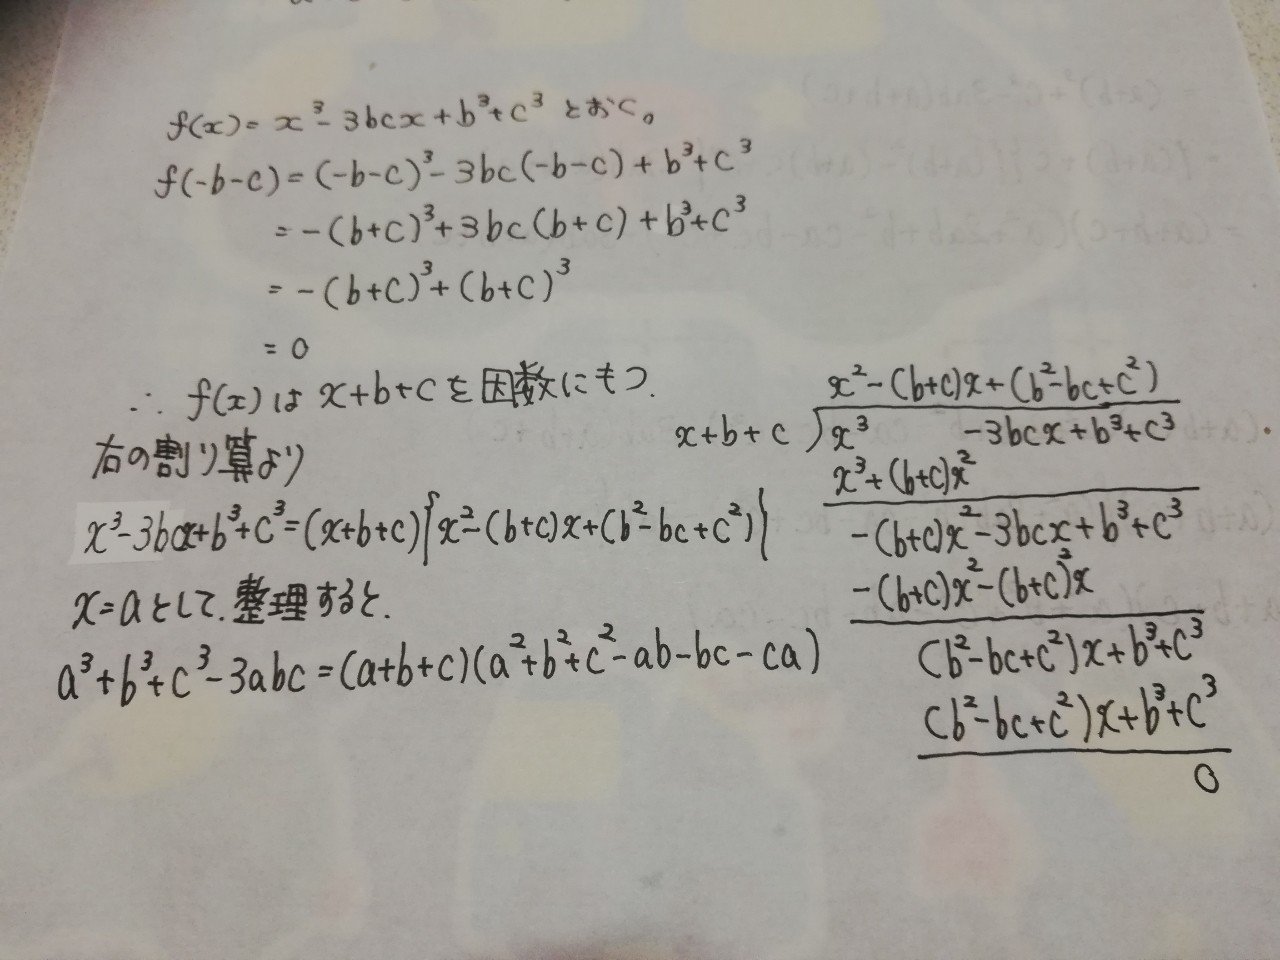 f(x) = x³ - 3bcx + b³ + c³ とおく。
f(-b-c) = (-b-c)³ - 3bc(-b-c) + b³ + c³
= -(b+c)³ + 3bc(b+c) + b³ + c³
= -(b+c)³ + (b+c)³
= 0
∴ f(x) は x+b+c を因数にもつ.
右の割り算より
x³-3bcx+b³+c³ = (x+b+c){x²-(b+c)x+(b²-bc+c²)}
x=aとして.整理すると.
a³+b³+c³-3abc = (a+b+c)(a²+b²+c²-ab-bc-ca)
x²-(b+c)x+(b²-bc+c²)
x+b+c ) x³ -3bcx+b³+c³
x³+(b+c)x²
-(b+c)x²-3bcx+b³+c³
-(b+c)x²-(b+c)²x
(b²-bc+c²)x+b³+c³
(b²-bc+c²)x+b³+c³
0